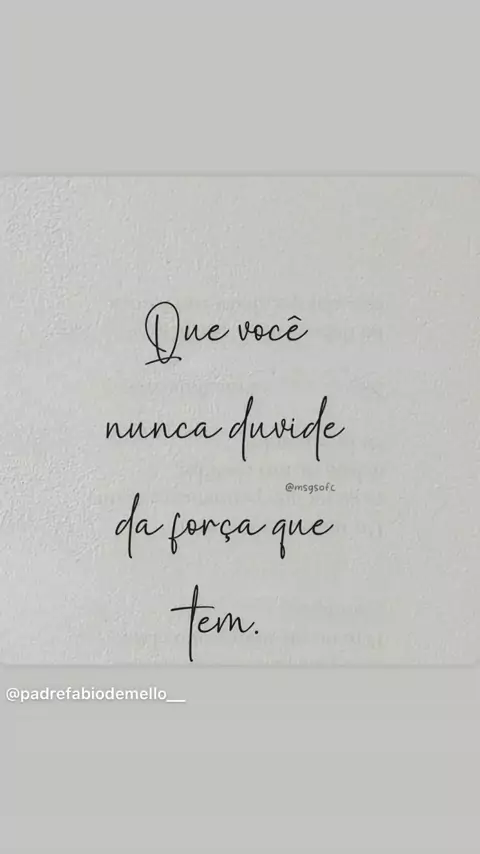 Que você
nunca duvide
@msgsofc
da força que
tem.
@padrefabiodemello__